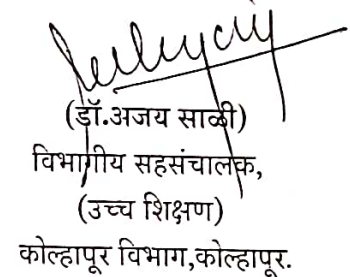 (डॉ.अजय साळी)
विभागीय सहसंचालक,
(उच्च शिक्षण)
कोल्हापूर विभाग,कोल्हापूर.